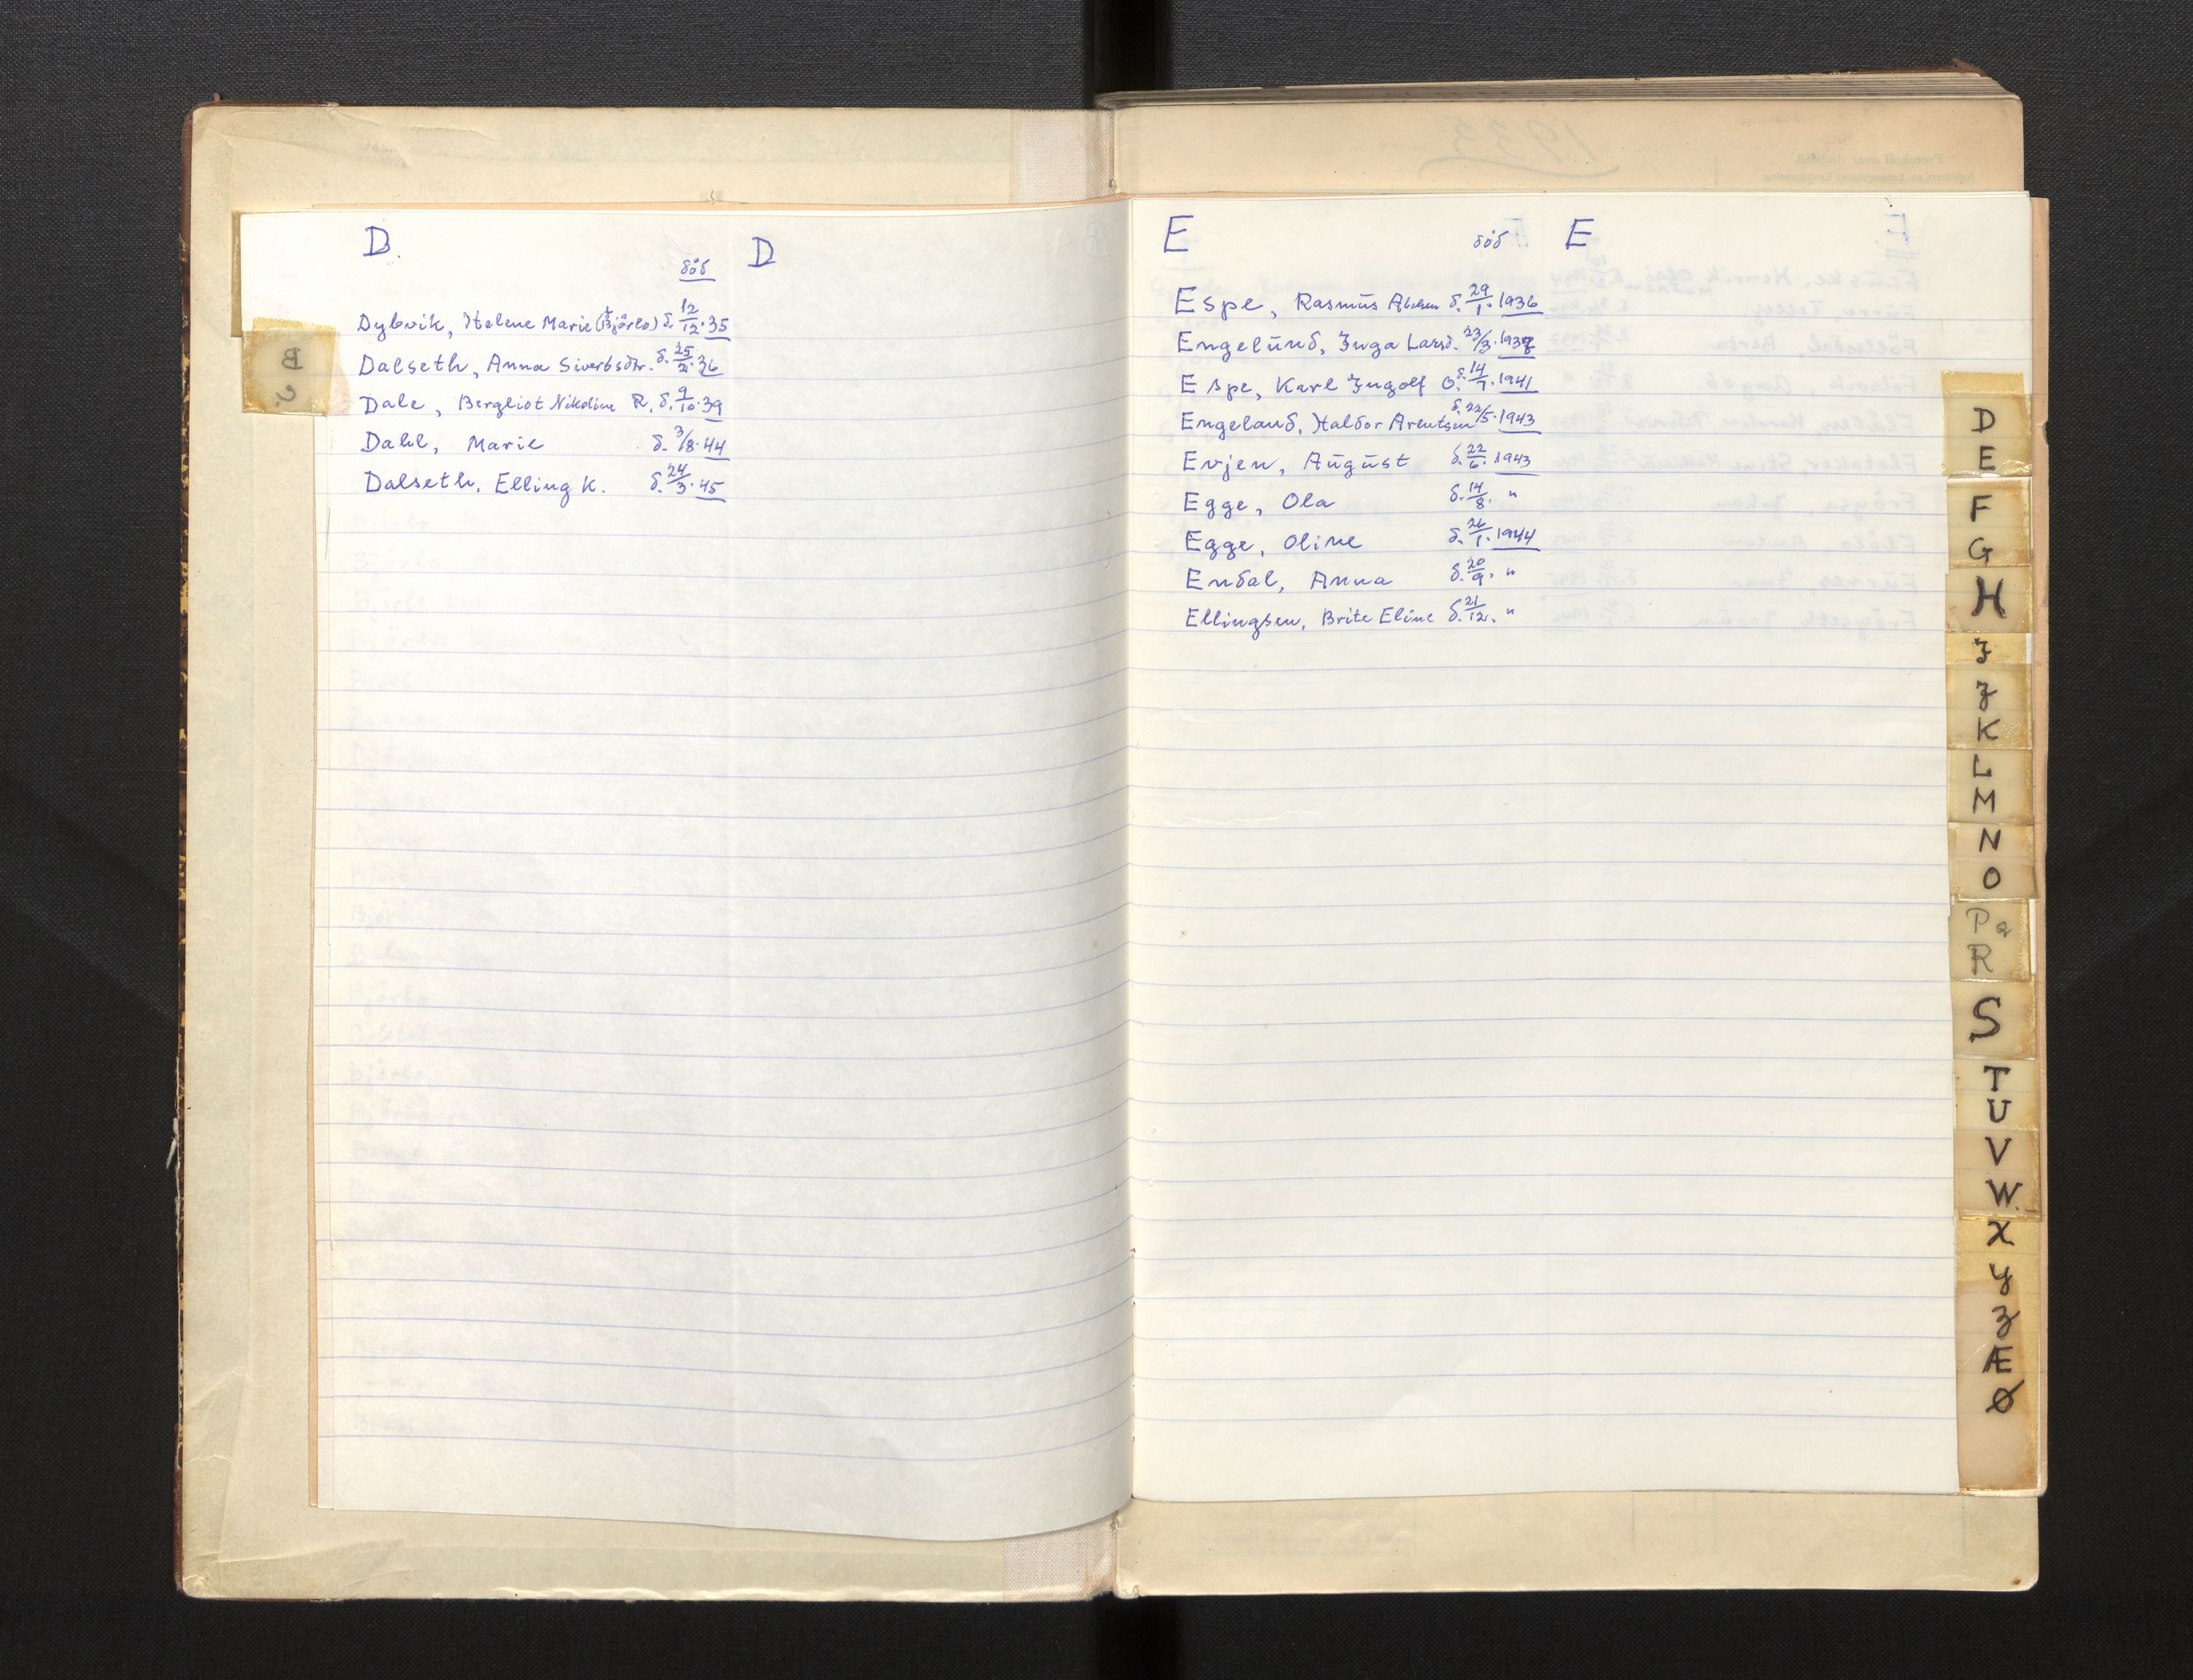 D. D
død
Dybvik, Helene Marie (f. Bjørlo) d. 12/12.35
Dalseth, Anna Sivertsdtr. d. 25/2.36
Dale, Bergliot Nikoline R. d. 9/10.39
Dahl, Marie d. 3/8.44
Dalseth, Elling K. d. 24/3.45
B
C.
E død E
Espe, Rasmus d. 29/1.1936
Engelund, Inga Larsd. 23/3.
Espe, Karl Ingolf O. d. 14/7.1941
Engeland, Haldor Arentsen d. 22/5.1943
Evjen, August d. 22/6.1943
Egge, Ola d. 14/8. "
Egge, Oline d. 26/1.1944
Endal, Anna d. 20/9. "
Ellingsen, Brite Eline d. 21/12. "
1933
Protokoll over dødsfall.
D
E
F
G
H
I
J
K
L
M
N
O
PQ
R
S
T
U
V
W.
X
Y
Z
Æ
Ø